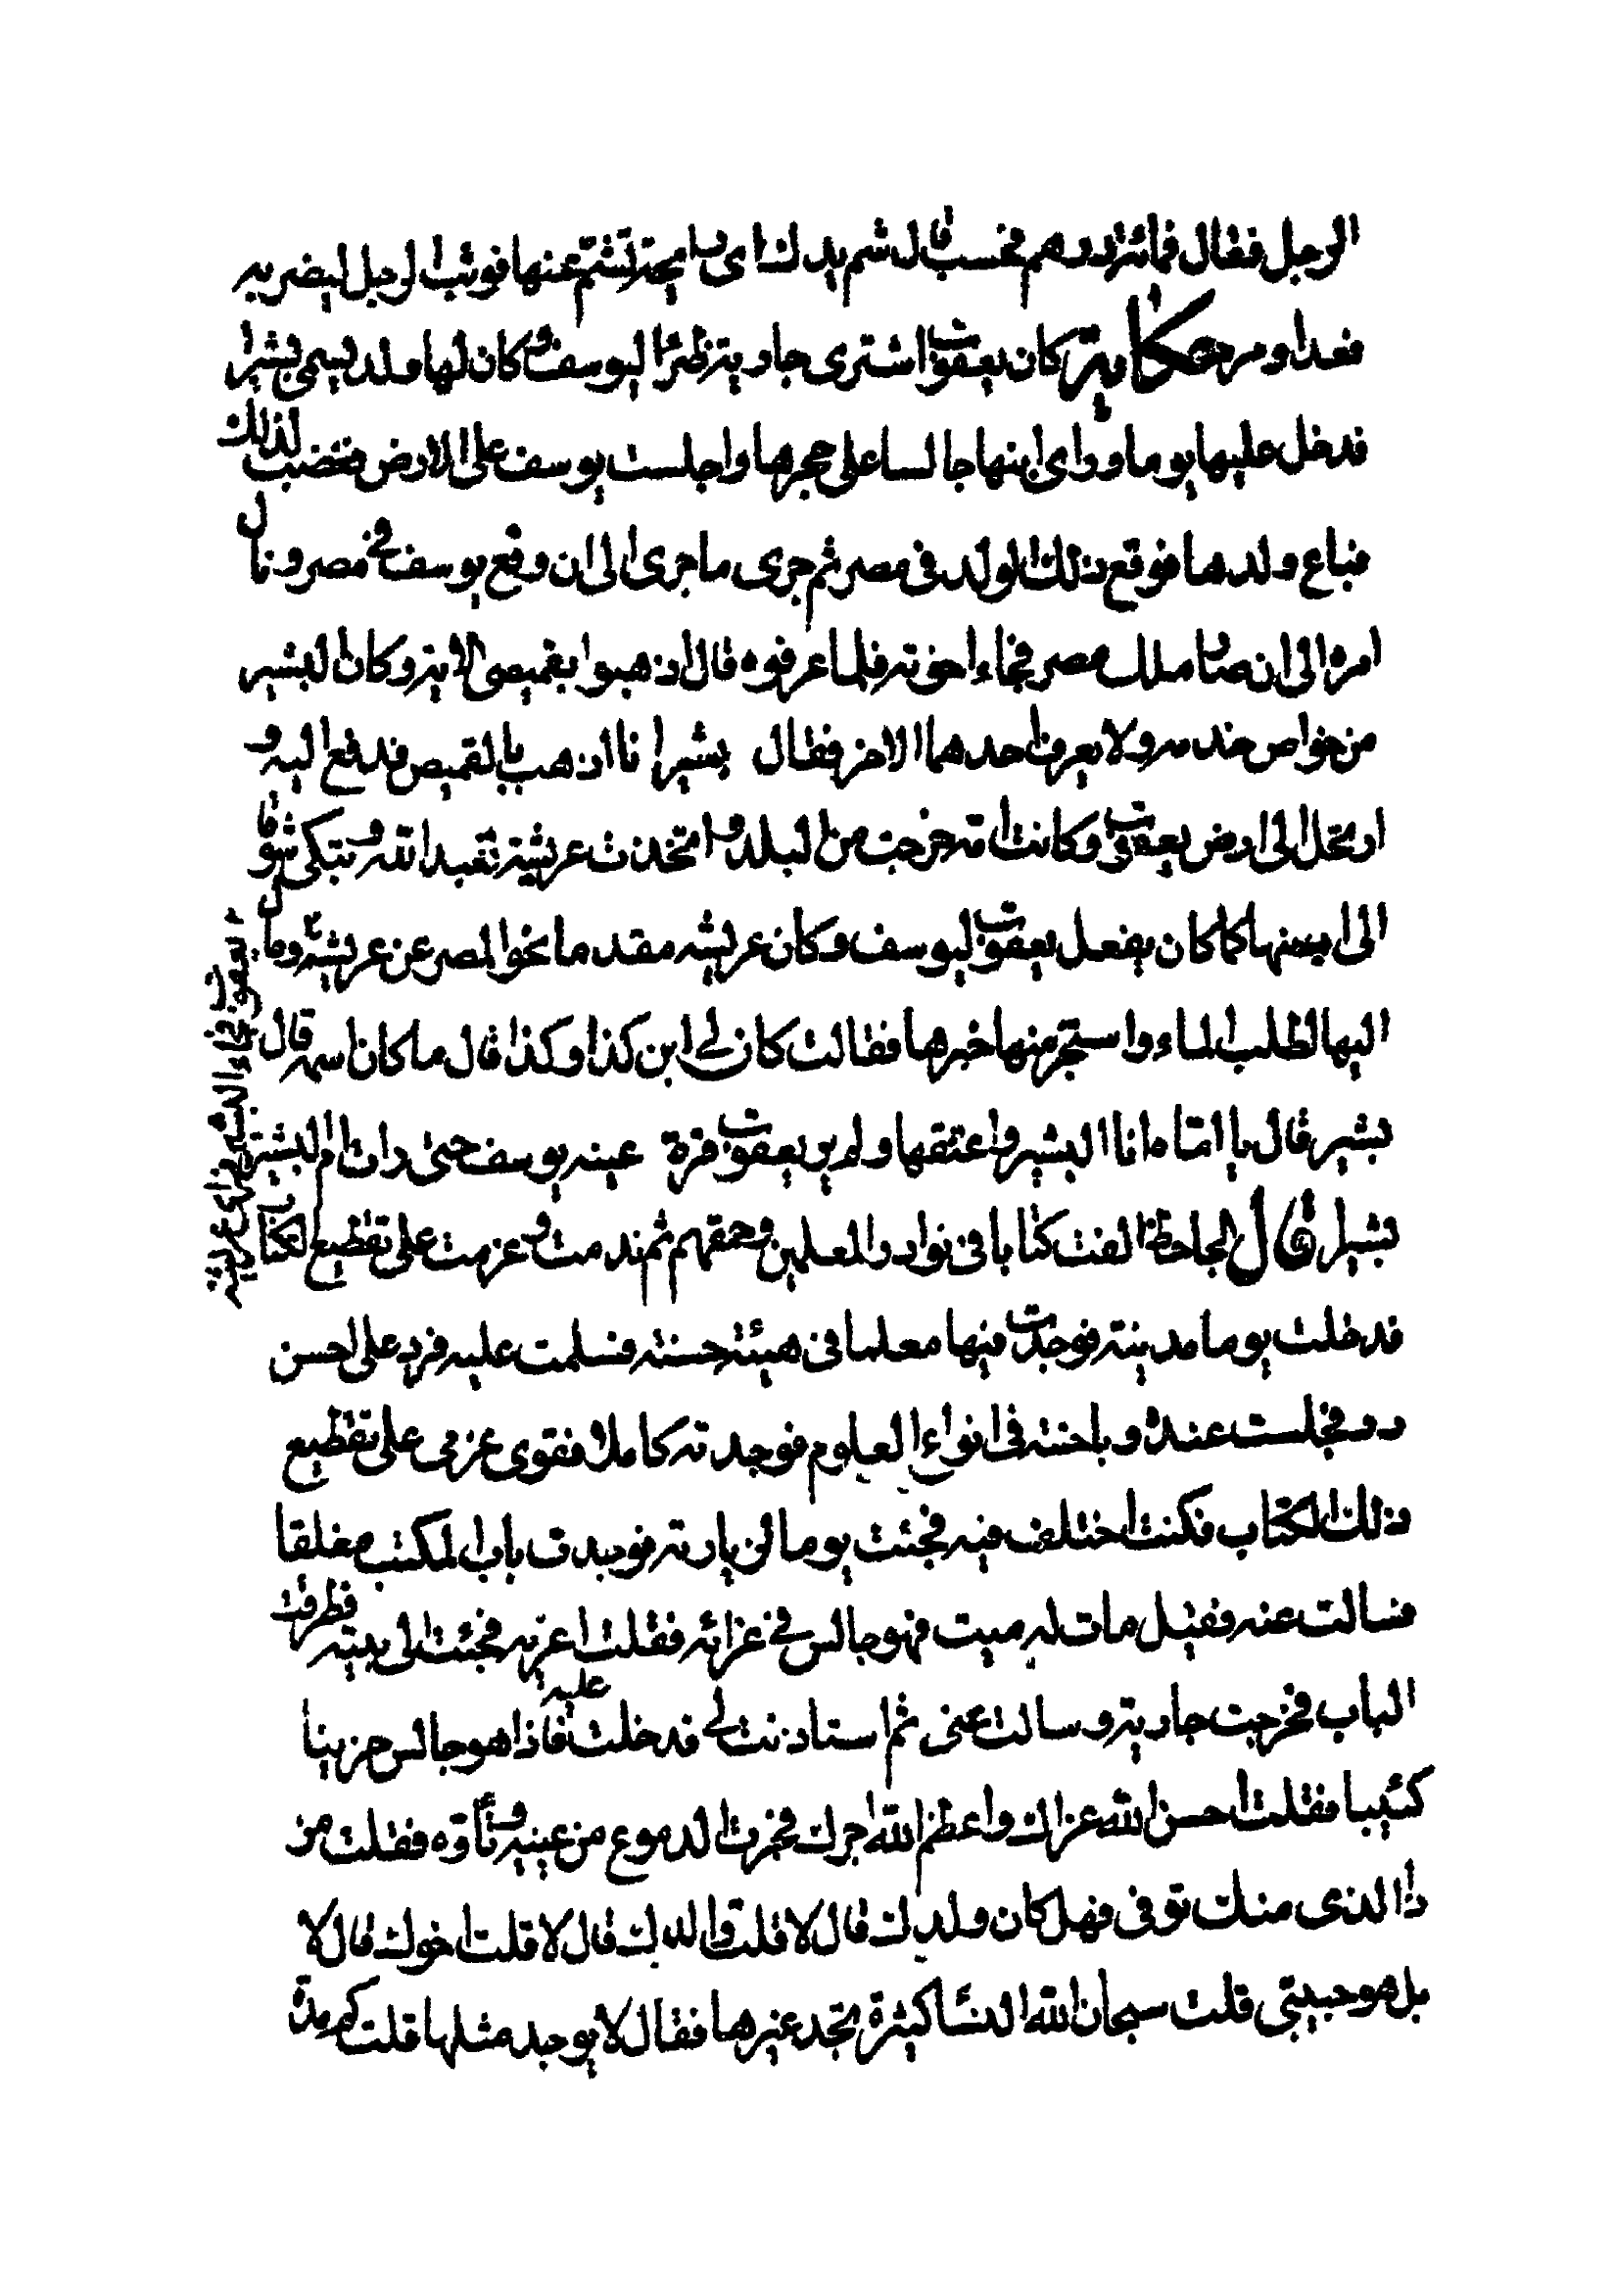 الرجل فقال فمائة درهم فحسب قال شم يدك اى رايحة تشتم عنها فوثب الرجل ليضربه
فعدا ومر حكاية كان يعقوب اشترى جارية ظئرا ليوسف وكان لها ولد يسمى بشيرا
فدخل عليها يوما وراى ابنها جالسا على حجرها واجلست يوسف على الارض فغضب لذلك
فباع ولدها فوقع ذلك الولد فى مصر ثم جرى ما جرى الى ان وقع يوسف فى مصر ونال
امره الى ان صار ملك مصر فجاء اخوته فلما عرفوه قال اذهبوا بقميصى الاية وكان البشير
من خواص خدمه ولا يعرف احدهما الاخر فقال بشير انا اذهب بالقميص فدفع اليه و
ارتحل الى ارض يعقوب وكانت امه خرجت من البلد واتخذت عريشة تعبد الله وتبكى شوقا
الى ابنها كما كان يفعل يعقوب ليوسف وكان عريشه مقدما نحو المصر عن عريشه ومال
اليها لطلب الماء واستخبر منها خبرها فقالت كان لى ابن كذا وكذا قال ما كان اسمه قال
بشير قال يا اماه انا البشير واعتقها ولم ير يعقوب قرة عينه يوسف حتى رات ام البشير
بشيرا قال الجاحظ الفت كتابا فى نوادر المعلمين وحمقهم ثم ندمت وعزمت على تقطيع الكتاب
فدخلت يوما مدينة فوجدت فيها معلما فى هيئة حسنة فسلمت عليه فرد على احسن
رد فجلست عنده وباحثته فى انواع العلوم فوجدته كاملا فقوى عزمى على تقطيع
ذلك الكتاب فكنت اختلف فيه فجئت يوما لزيارته فوجدت باب المكتب مغلقا
فسالت عنه فقيل مات له ميت فهو جالس فى عزائه فقلت اعزيه فجئت الى بيته فطرقت
الباب فخرجت جارية وسالت عنى ثم استاذنت لى فدخلت عليه فاذا هو جالس حزينا
كئيبا فقلت احسن الله عزاك واعظم الله اجرك فخرت الدموع من عينيه وتأوه فقلت من
ذا الذى منك توفى فهل كان ولدك قال لا قلت والدك قال لا قلت اخوك قال لا
بل هو حبيبتى قلت سبحان الله النسا كثيرة تجد غيرها فقال لا يوجد مثلها قلت كم مدة